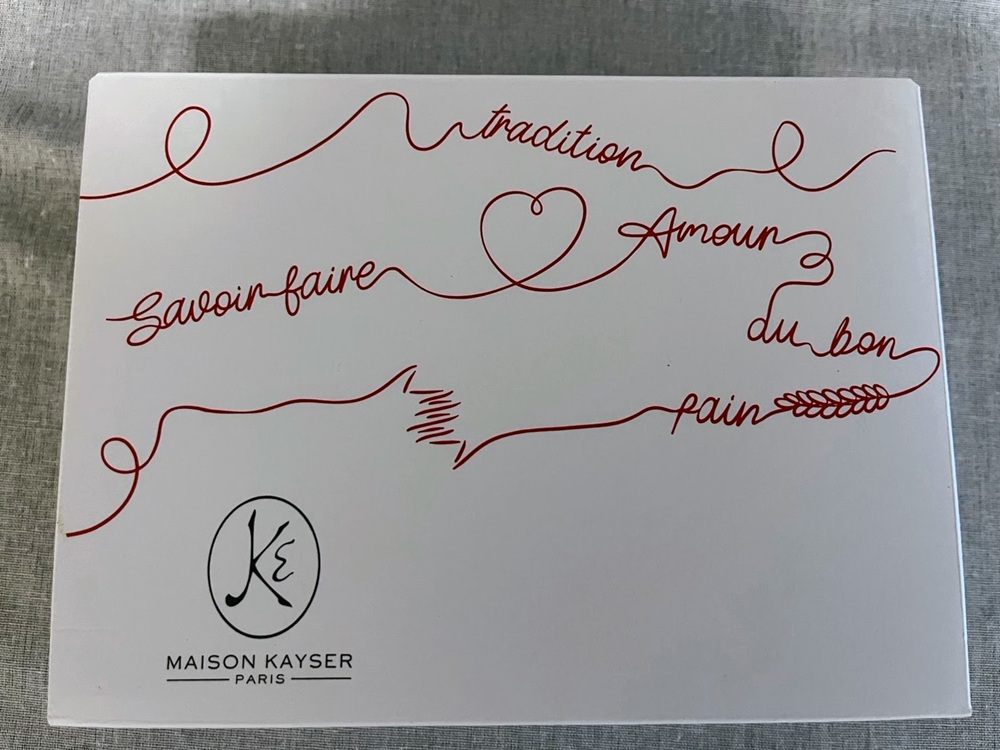 tradition
Savoir-faire
Amour
du bon
pain
KE
MAISON KAYSER
PARIS